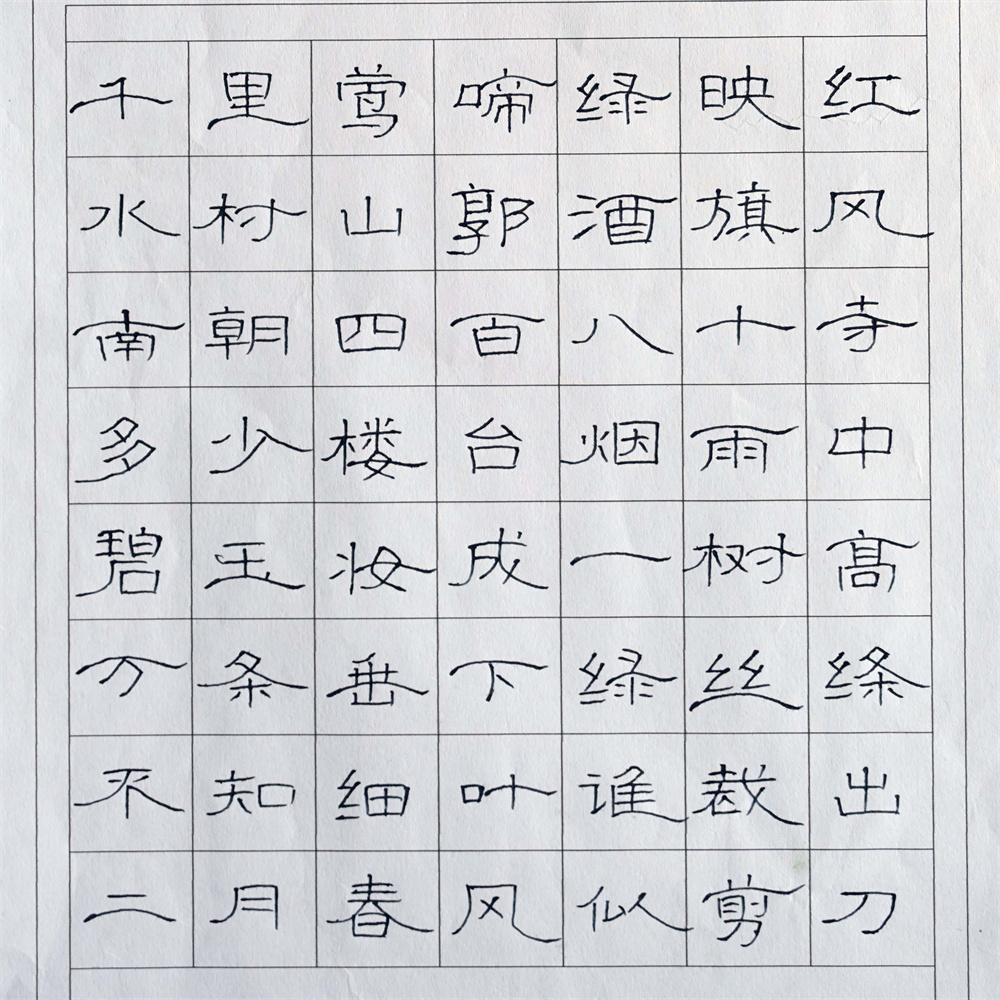 千里莺啼绿映红
水村山郭酒旗风
南朝四百八十寺
多少楼台烟雨中
碧玉妆成一树高
万条垂下绿丝绦
不知细叶谁裁出
二月春风似剪刀